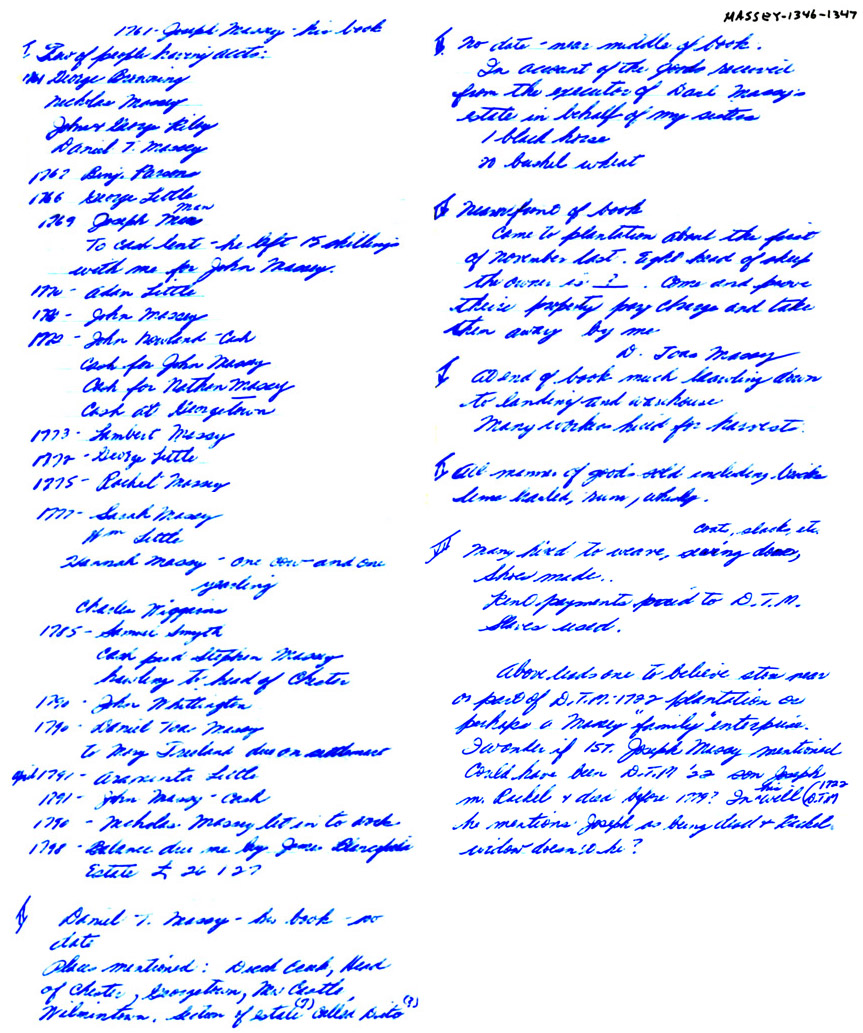 MASSEY-1346-1347
1761-Joseph Massey - his book
I. Few of people having accts:
1761 George Browning
Nicholas Massey
John & George Riley
Daniel T. Massey
1767 Benj. Parsons
1766 George Little
1769 Joseph Man
To cash lent - he left 15 shillings
with me for John Massey.
1770 - Adam Little
John Massey
1770 - John Rowland - Cash
Cash for John Massey
Cash for Nathan Massey
Cash at Georgetown
1773 - Lambert Massey
1772 - George Little
1775 - Rachel Massey
1777 - Sarah Massey
Wm Little
Hannah Massey - one cow and one
yearling
Charles Wiggins
1785 - Samuel Smyth
Cash paid Stephen Massey
hawling to head of Chester
1790 - John Whittington
1790 - Daniel Toas Massey
to Mary Freeland due on settlement
April 1791 - Araminta Little
1791 - John Massey - Cash
1790 - Nicholas Massey let in to
1798 - Balance due me by James
Estate £ 26 1 27
II Daniel T. Massey - his book - no
date
Places mentioned: Duck Creek, Head
of Chester, Georgetown, New Castle,
Wilmintown. Section of estate (?) called Dito (?)
No date - near middle of book.
In account of the goods received
from the executor of Danl Massey's
estate in behalf of my sisters
1 black horse
20 bushel wheat
Near front of book
Came to plantation about the first
of November last. Eight head of sheep
the owner is ? . Come and prove
theire property pay charge and take
them away by me
D. Toas Massey
At end of book much hawling down
to landing and warehouse
Many workers hired for harvest.
All manner of goods sold including bricks
lime, rum, whisky.
coats, slack, etc.
Many hired to weave, sewing done,
Shoes made..
Rent payments paid to D.T.M.
Slaves used.
Above leads one to believe store near
or part of D.T.M. 1722 plantation or
perhaps a Massey "family" enterprise.
I wonder if 1st. Joseph Massey mentioned
could have been D.T.M '22 son Joseph
m. Rachel & died before 1779? In his will (1722 D.T.M
he mentions Joseph as being dead & Rachel
widow doesn't he?